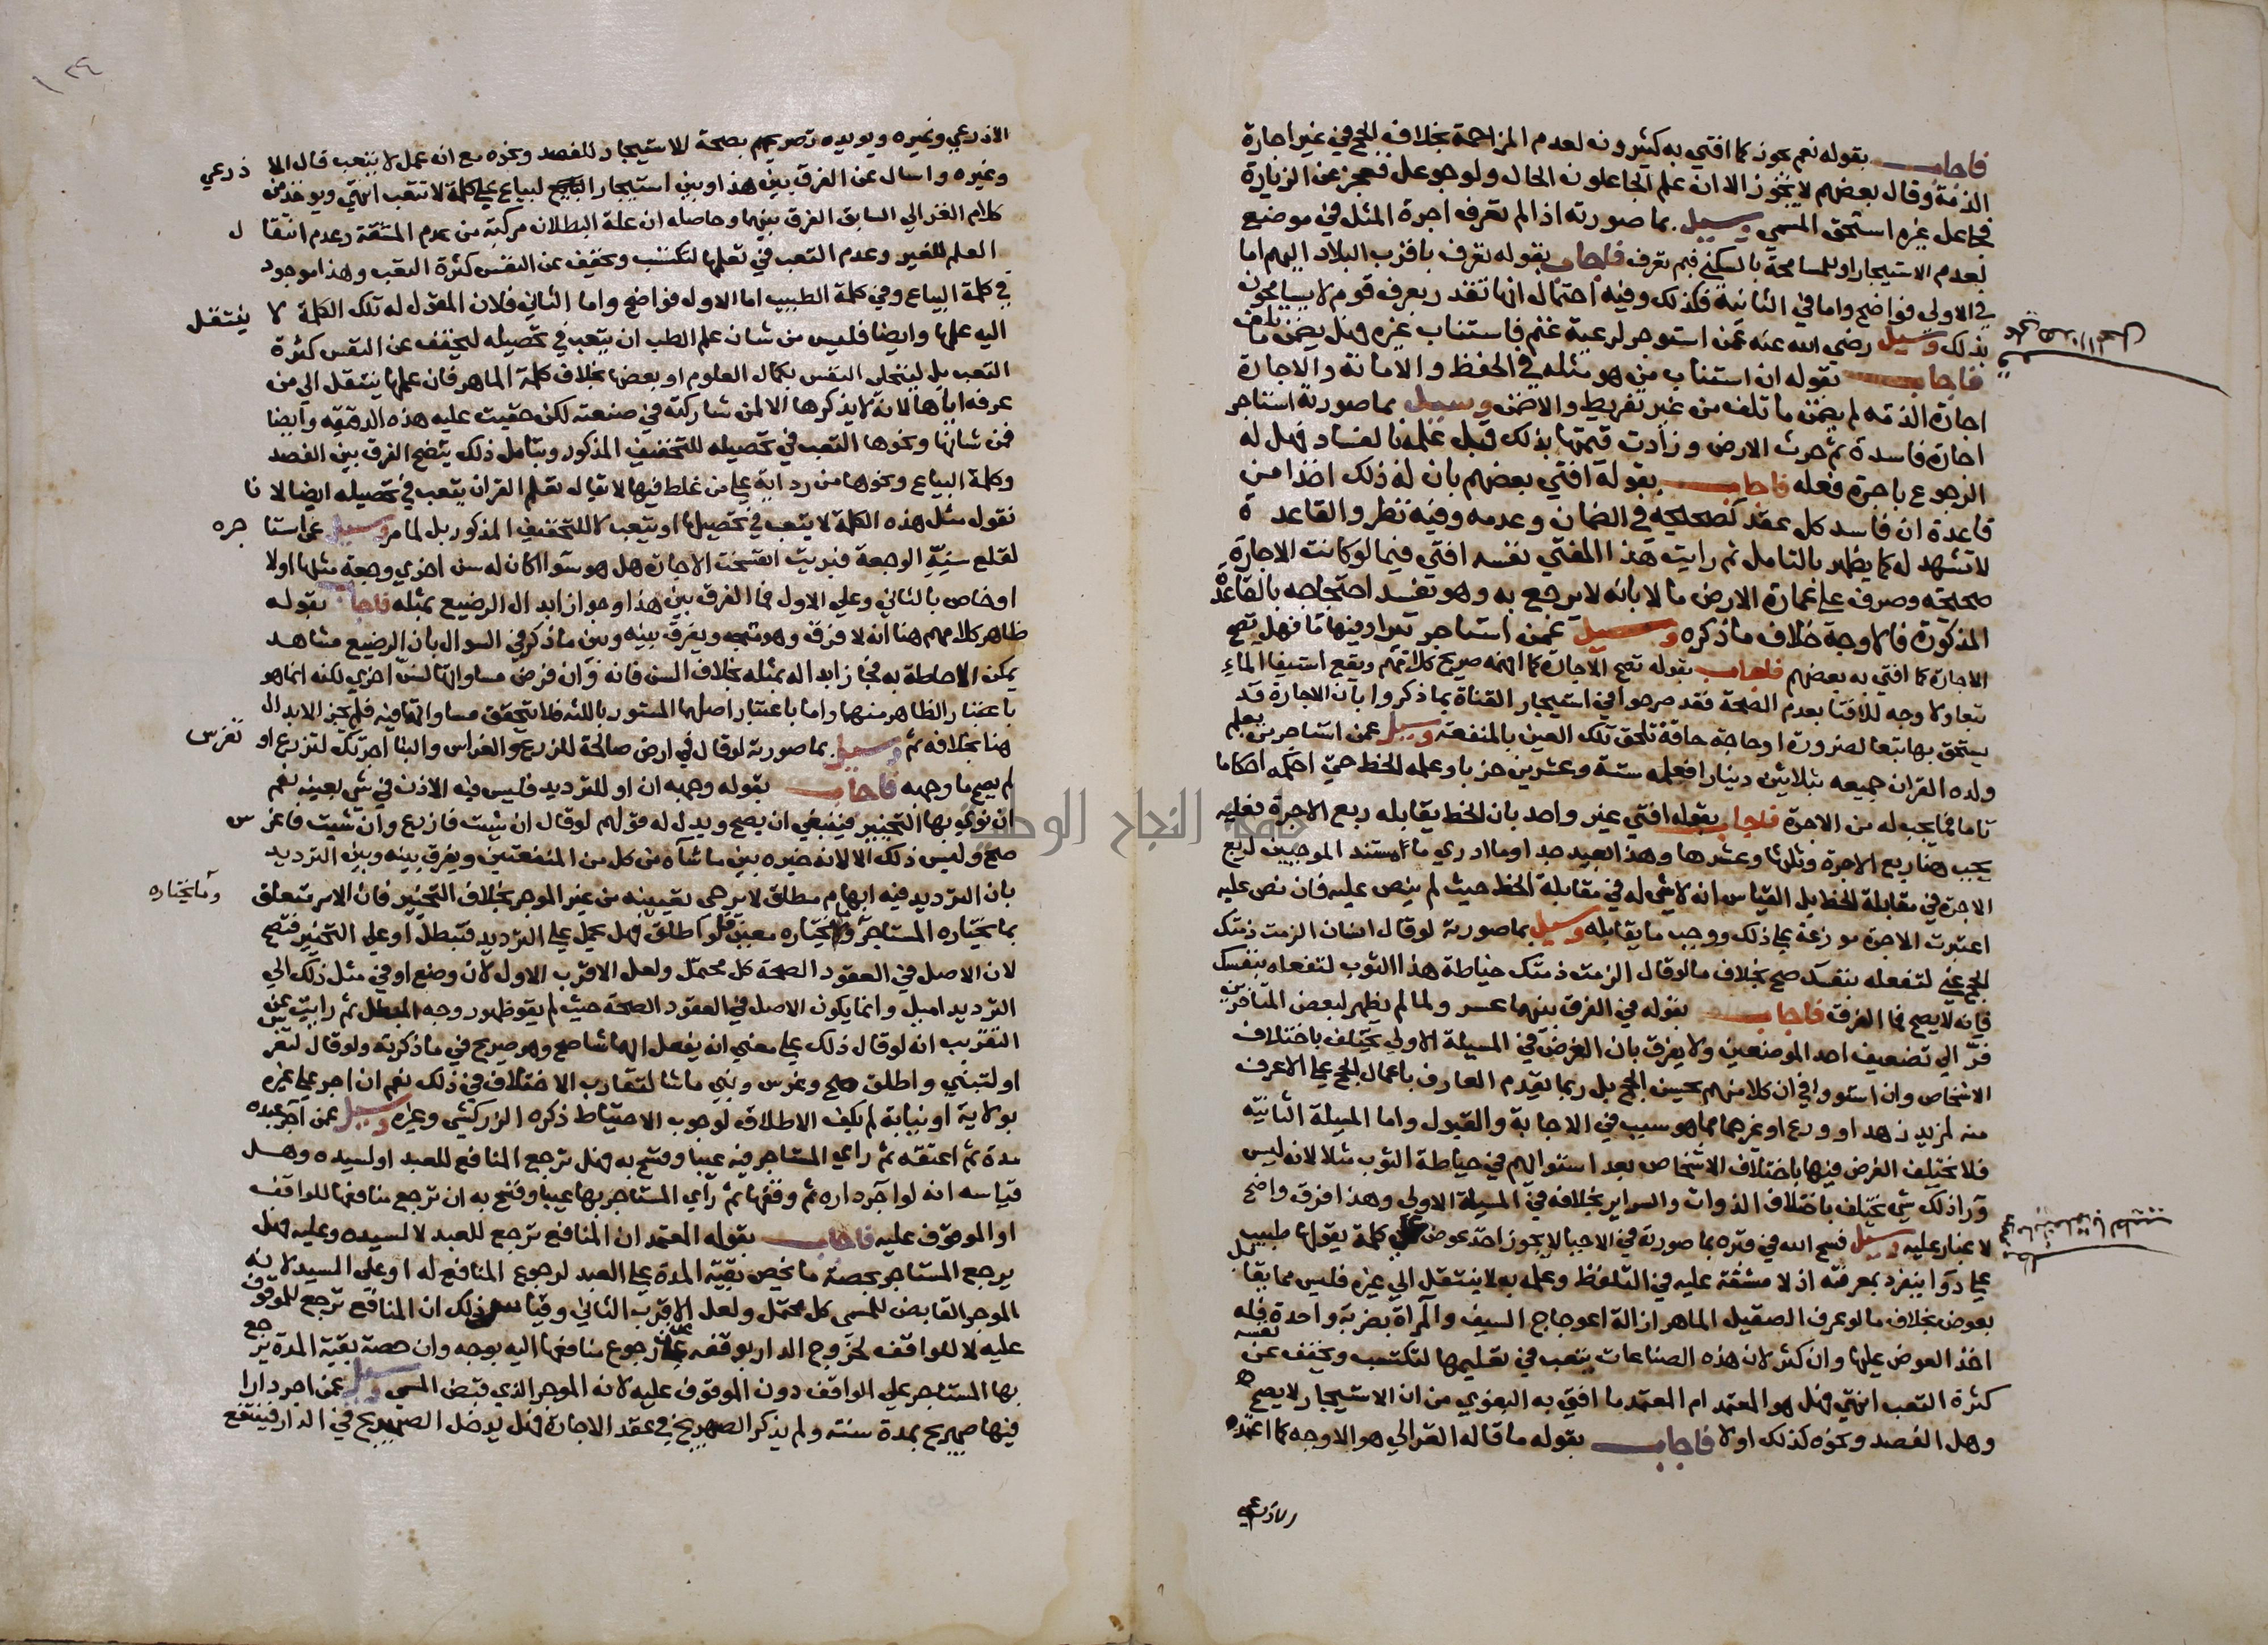 فاجاب بقوله نعم يجوز كما افتي به كثيرون لعدم المزاحمة بخلافه الحج في غير اجارة
الذمة وقال بعضهم لا يجوز الا ان علم الجاعلون الحال ولو جوعل فعجز عن الزيارة
فجاعل غيره استحق المسمى وسيل بما صورته اذا لم تعرف اجرة المثل في موضع
لعدم الاستيجار او للمسامحة بالسكني فبم تعرف فاجاب بقوله تعرف باقرب البلاد اليهم اما
في الاولى فواضح واما في الثانية فكذلك وفيه احتمال انها تقدر بعرف قوم لا يسامحون
بذلك وسيل رضي الله عنه عمن استوجر لرعية غنم فاستناب غيره فهل يضمن ما تلف
فاجاب بقوله ان استناب من هو مثله في الحفظ والامانة والاجارة
اجارة الذمة لم يضمن ما تلف من غير تفريط والا ضمن وسيل بما صورته استاجر
اجارة فاسدة ثم حرث الارض وزادت قيمتها بذلك قبل علمنا لفساد فهل له
الرجوع باجرة فعله فاجاب بقوله افتي بعضهم بان له ذلك اخذا من
قاعدة ان فاسد كل عقد كصحيحه في الضمان وعدمه وفيه نظر والقاعدة
لا تشهد له كما يظهر بالتامل ثم رايت هذا المفتي نفسه افتي فيما لو كانت الاجارة
صحيحة وصرف على عمارة الارض مالا بانه لا يرجع به وهو يفسد احتجاجه بالقاعدة
المذكورة فالاوجه خلاف ما ذكره وسيل عمن استاجر بيرا وفيها ما فهل تصح
الاجارة كما افتي به بعضهم فاجاب بقوله تصح الاجارة كما افهمه صريح كلامهم ويقع استيفا الماء
تبعا ولا وجه للافتا بعدم الصحة فقد صرحوا في استيجار القناة بما ذكروا بان الاجارة قد
يستحق بها تبعا لضرورة او حاجة حاقة تلحق تلك العين بالمنفعة وسيل عمن استاجر من يعلم
ولده القران جميعه بثلاثين دينارا فعلمه ستة وعشرين حزبا وعلمه الخط حتي احكمه احكاما
تاما فما يجب له من الاجرة فاجاب بقوله افتي غير واحد بان الخط يقابله ربع الاجرة فعليه
يجب هنا ربع الاجرة وثلثها وعشرها وهذا بعيد جدا وما ادري ما مستند الموجبين لربع
الاجرة في مقابلة الخط بل القياس انه لا شي له في مقابلة الخط حيث لم ينص عليه فان نص عليه
اعتبرت الاجرة موزعة على ذلك ووجب ما يقابله وسيل بما صورته لو قال انسان الزمت ذمتك
الحج عني لتفعله بنفسك صح بخلاف ما لو قال الزمت ذمتك خياطة هذا الثوب لتفعله بنفسك
فانه لا يصح فما الفرق فاجاب بقوله في الفرق بينهما عسر ولما لم يظهر لبعض المتاخرين
فر الي تضعيف احد الموضعين ولا يفرق بان الغرض في المسيلة الاولي يختلف باختلاف
الاشخاص وان استووا في ان كلا منهم يحسن الحج بل ربما يقدم العارف باعمال الحج على الاعرف
منه لمزيد زهد او ورع او نحوهما مما هو سبب في الاجابة والقبول واما المسيلة الثانية
فلا يختلف الغرض فيها باختلاف الاشخاص بعد استوائهم في خياطة الثوب مثلا لانه ليس
ورا ذلك شي يختلف باختلاف الذوات والسراير بخلافه في المسيلة الاولي وهذا فرق واضح
لا غبار عليه وسيل فسح الله في مدته بما صورته في الاحيا لا يجوز اخذ عوض على كلمة يقولها طبيب
على دوا ينفرد بمعرفته اذ لا مشقة عليه في التلفظ وعلمه به لا ينتقل الي غيره فليس مما يقابل
بعوض بخلاف ما لو عرف الصقيل الماهر ازالة اعوجاج السيف والمراة بضربة واحدة فله
اخذ العوض عليها وان كثر لان هذه الصناعات يتعب في تعليمها لتكتسب ويخفف عن نفسه
كثرة التعب انتهي فهل هو المعتمد ام المعتمد ما افتي به البغوي من ان الاستيجار لا يصح
وهل الفصد ونحوه كذلك اولا فاجاب بقوله ما قاله الغزالي هو الاوجه كما اعتمده
الاذرعي
الاذرعي وغيره ويويده تصريحهم بصحة الاستيجار للفصد ونحوه مع انه عمل لا يتعب قال الاذرعي
وغيره واسال عن الفرق بين هذا وبين استيجار البياع لبياع على كلمة لا تتعب انتهي ويوخذ من
كلام الغزالي السابق الفرق بينهما وحاصله ان علة البطلان مركبة من عدم المشقة وعدم انتقال
العلم للغير وعدم التعب في تعلمها لتكتسب وتخفيف عن النفس كثرة التعب وهذا موجود
في كلمة البياع وفي كلمة الطبيب اما الاول فواضح واما الثاني فلان المقول له تلك الكلمة لا ينتقل
اليه علمها وايضا فليس من شان علم الطب ان يتعب في تحصيله ليخفف عن النفس كثرة
التعب بل ليتحلى النفس بكمال العلوم او بعضها بخلاف كلمة الماهر فان علمها ينتقل الي من
عرفه اياها لانه لا يذكرها الا لمن شاركه في صنعته لكن خفيت عليه هذه الدقيقة وايضا
فمن شانها ونحوها التعب في تحصيله للتخفيف المذكور وبتامل ذلك يتضح الفرق بين الفصد
وكلمة البياع ونحوها من رد اية على من غلط فيها لا يقال تعلم القران يتعب في تحصيله ايضا لانا
نقول مثل هذه الكلمة لا يتعب في تحصيلها او يتعب لا للتخفيف المذكور بل لما مر وسيل عمن استاجره
لقلع سنه الوجعة فبريت انفسخت الاجارة هل هو سوا اكان له سن اخري وجعة مثلها اولا
او خاص بالثاني وعلي الاول فما الفرق بين هذا وجواز ابدال الرضيع بمثله فاجاب بقوله
ظاهر كلامهم هنا انه لا فرق وهو متجه ويفرق بينه وبين ما ذكر في السوال بان الرضيع مشاهد
يمكن الاحاطة به فجاز ابداله بمثله بخلاف السن فانه وان فرض مساواتها لسن اخري لكنه انما هو
باعتبار الظاهر منها واما باعتبار اصلها المستور باللثة فلا تتحقق مساواتها فيه فلم يجز الابدال
هنا بخلافه ثم وسيل بما صورته لو قال في ارض صالحة للزرع والغراس والبنا اجرتك لتزرع او تغرس
لم يصح ما وجهه فاجاب بقوله وجهه ان او للترديد فليس فيه الاذن في شي بعينه نعم
ان نوي بها التخيير فينبغي ان يصح ويدل له قولهم لو قال ان شيت فازرع وان شيت فاغرس
صح وليس ذلك الا لانه خيره بين ما شاه من كل من المنفعتين ويفرق بينه وبين الترديد
بان الترديد فيه ابهام مطلق لا يرجى تعيينه من غير الموجر بخلاف التخيير فان الامر متعلق
بما يختاره المستاجر وما يختاره معين فلو اطلق فهل يحمل على الترديد فتبطل او على التخيير فتصح
لان الاصل في العقود الصحة كل محتمل ولعل الاقرب الاول لان وضع او في مثل ذلك الي
الترديد اميل وانما يكون الاصل في العقود الصحة حيث لم يقو ظهور وجه المبطل ثم رايت عن
التقريب انه لو قال ذلك على معني انه يفعل ايهما شا صح وهو صريح في ما ذكرته ولو قال لتغرس
او لتبني واطلق صح وغرس وبني ما شا لتقارب الاختلاف في ذلك نعم ان اجر على غيره
بولاية او نيابة لم يكف الاطلاق لوجوب الاحتياط ذكره الزركشي وغيره وسيل عمن آجر عبده
مدة ثم اعتقه ثم راي المستاجر فيه عيبا وفسخ به فهل ترجع المنافع للعبد او لسيده وهل
قياسه انه لو اجر داره ثم وقفها ثم رآي المستاجر بها عيبا وفسخ به ان ترجع منافعها للواقف
او الموقوف عليه فاجاب بقوله المعتمد ان المنافع ترجع للعبد لا لسيده وعليه فهل
يرجع المستاجر بحصة ما يخص بقية المدة على العبد لرجوع المنافع له او على السيد لانه
الموجر القابض للمسمى كل محتمل ولعل الاقرب الثاني وقياس ذلك ان المنافع ترجع للموقوف
عليه لا للواقف لخروج الدار بوقفه عن رجوع منافعها اليه بوجه وان حصة بقية المدة يرجع
بها المستاجر على الواقف دون الموقوف عليه لانه الموجر الذي قبض المسمى وسيل عمن اجر دارا
فيها صهريج بمدة سنة ولم يذكر الصهريج في عقد الاجارة فهل يدخل الصهريج في الدار فينتفع
جامعة النجاح الوطنية